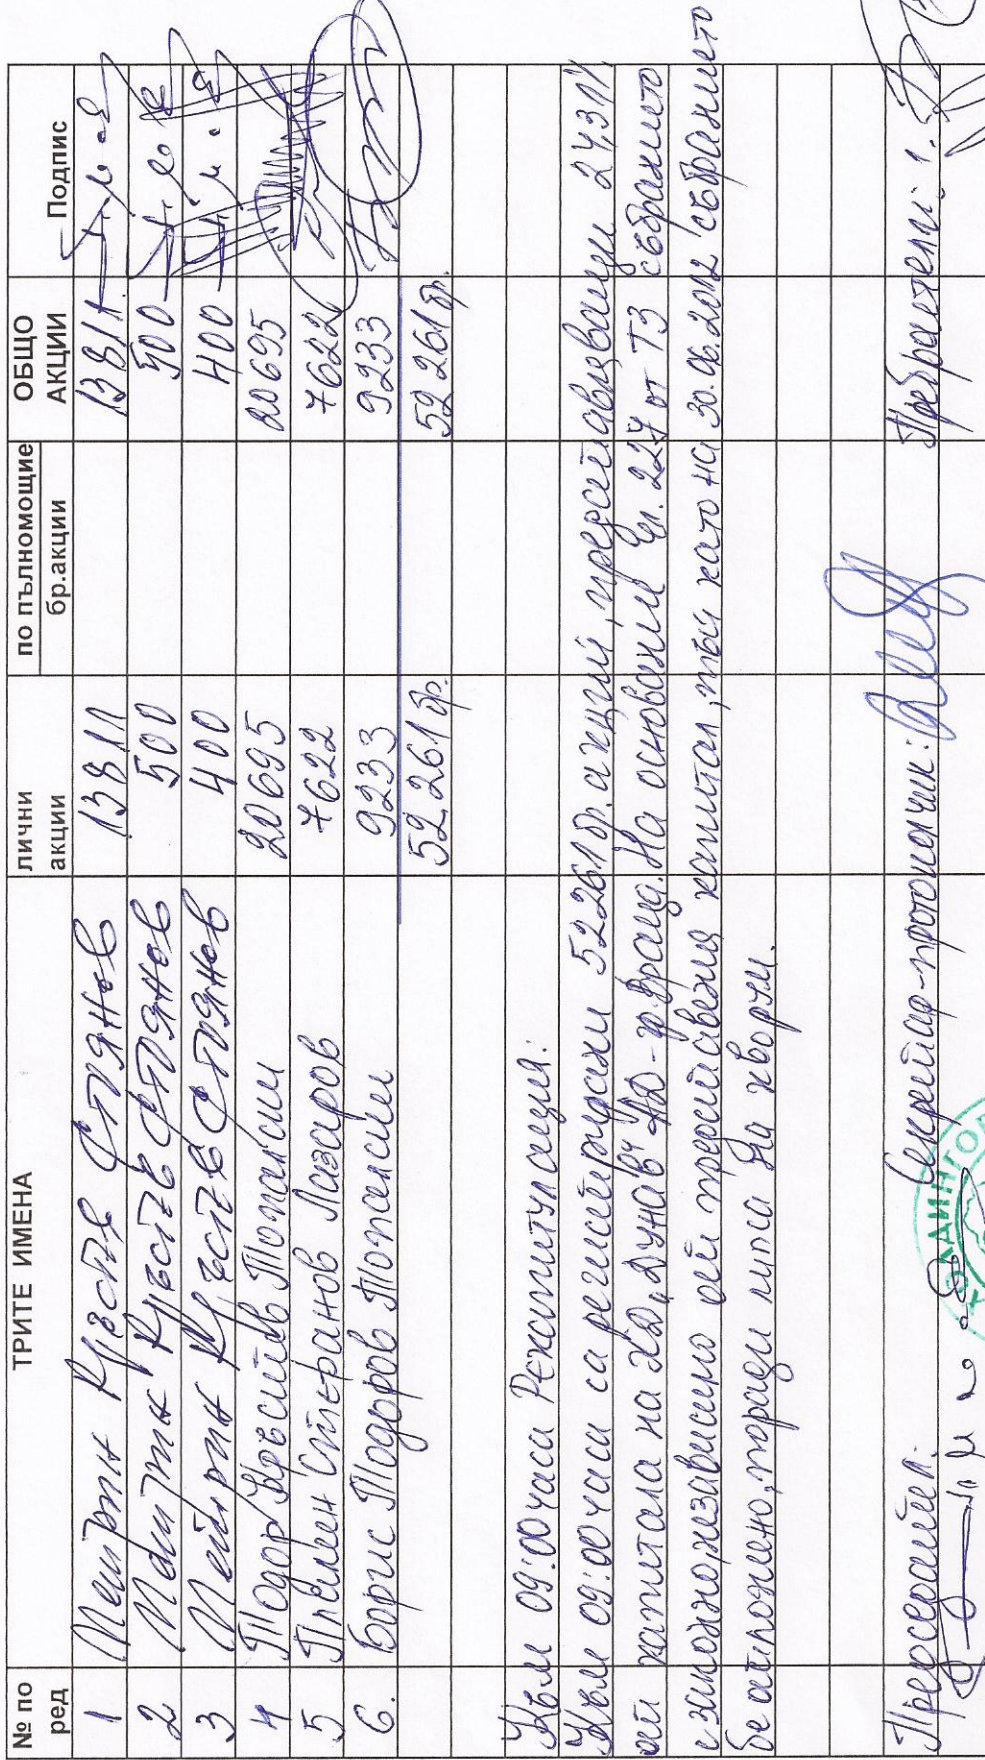 № по ред ТРИТЕ ИМЕНА лични акции по пълномощие бр.акции ОБЩО АКЦИИ Подпис
1 Петър Кръстев Стянов 13811 13811
2 Петър Кръстев Стянов 500 500
3 Петър Кръстев Стянов 400 400
4 Тодор Кръстев Топалски 20695 20695
5 Пламен Стефанов Лазаров 7622 7622
6. Борис Тодоров Топалски 9233 9233
52 261 бр. 52 261 бр.
Към 09:00 часа Рекапитулация:
Към 09:00 часа са регистрирани 52261 бр. акции, представляващи 27,31%
от капитала на ХД „Дунав" АД - гр. Враца. На основание чл. 227 от ТЗ събранието
е законно, независимо от представения капитал, тъй като на 30.06.2012 събранието
бе отложено, поради липса на кворум.
Председател: Секретар-протоколчик: Преброители: 1.
ХОЛДИНГО